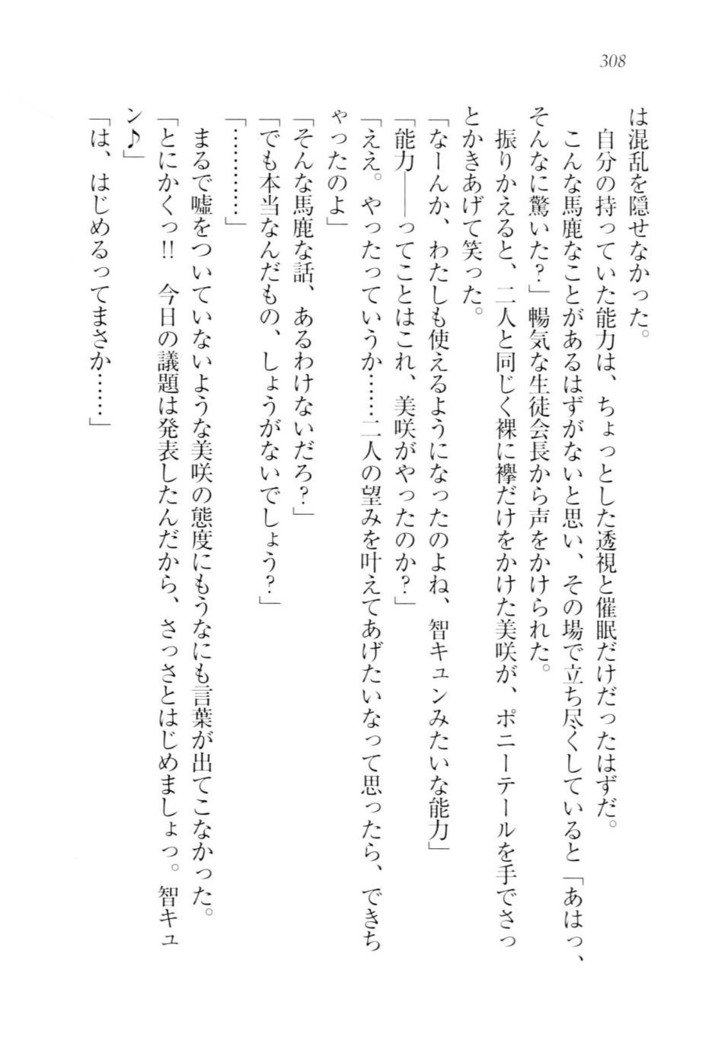 308
は混乱を隠せなかった。
　自分の持っていた能力は、ちょっとした透視と催眠だけだったはずだ。
　こんな馬鹿なことがあるはずがないと思い、その場で立ち尽くしていると「あはっ、
そんなに驚いた？」暢気な生徒会長から声をかけられた。
　振りかえると、二人と同じく裸に襷だけをかけた美咲が、ポニーテールを手でさっ
とかきあげて笑った。
「なーんか、わたしも使えるようになったのよね、智キュンみたいな能力」
「能力――ってことはこれ、美咲がやったのか？」
「ええ。やったっていうか……二人の望みを叶えてあげたいなって思ったら、できち
ゃったのよ」
「そんな馬鹿な話、あるわけないだろ？」
「でも本当なんだもの、しょうがないでしょう？」
「…………」
　まるで嘘をついていないような美咲の態度にもうなにも言葉が出てこなかった。
「とにかくっ!!　今日の議題は発表したんだから、さっさとはじめましょっ。智キュ
ン♪」
「は、はじめるってまさか……」